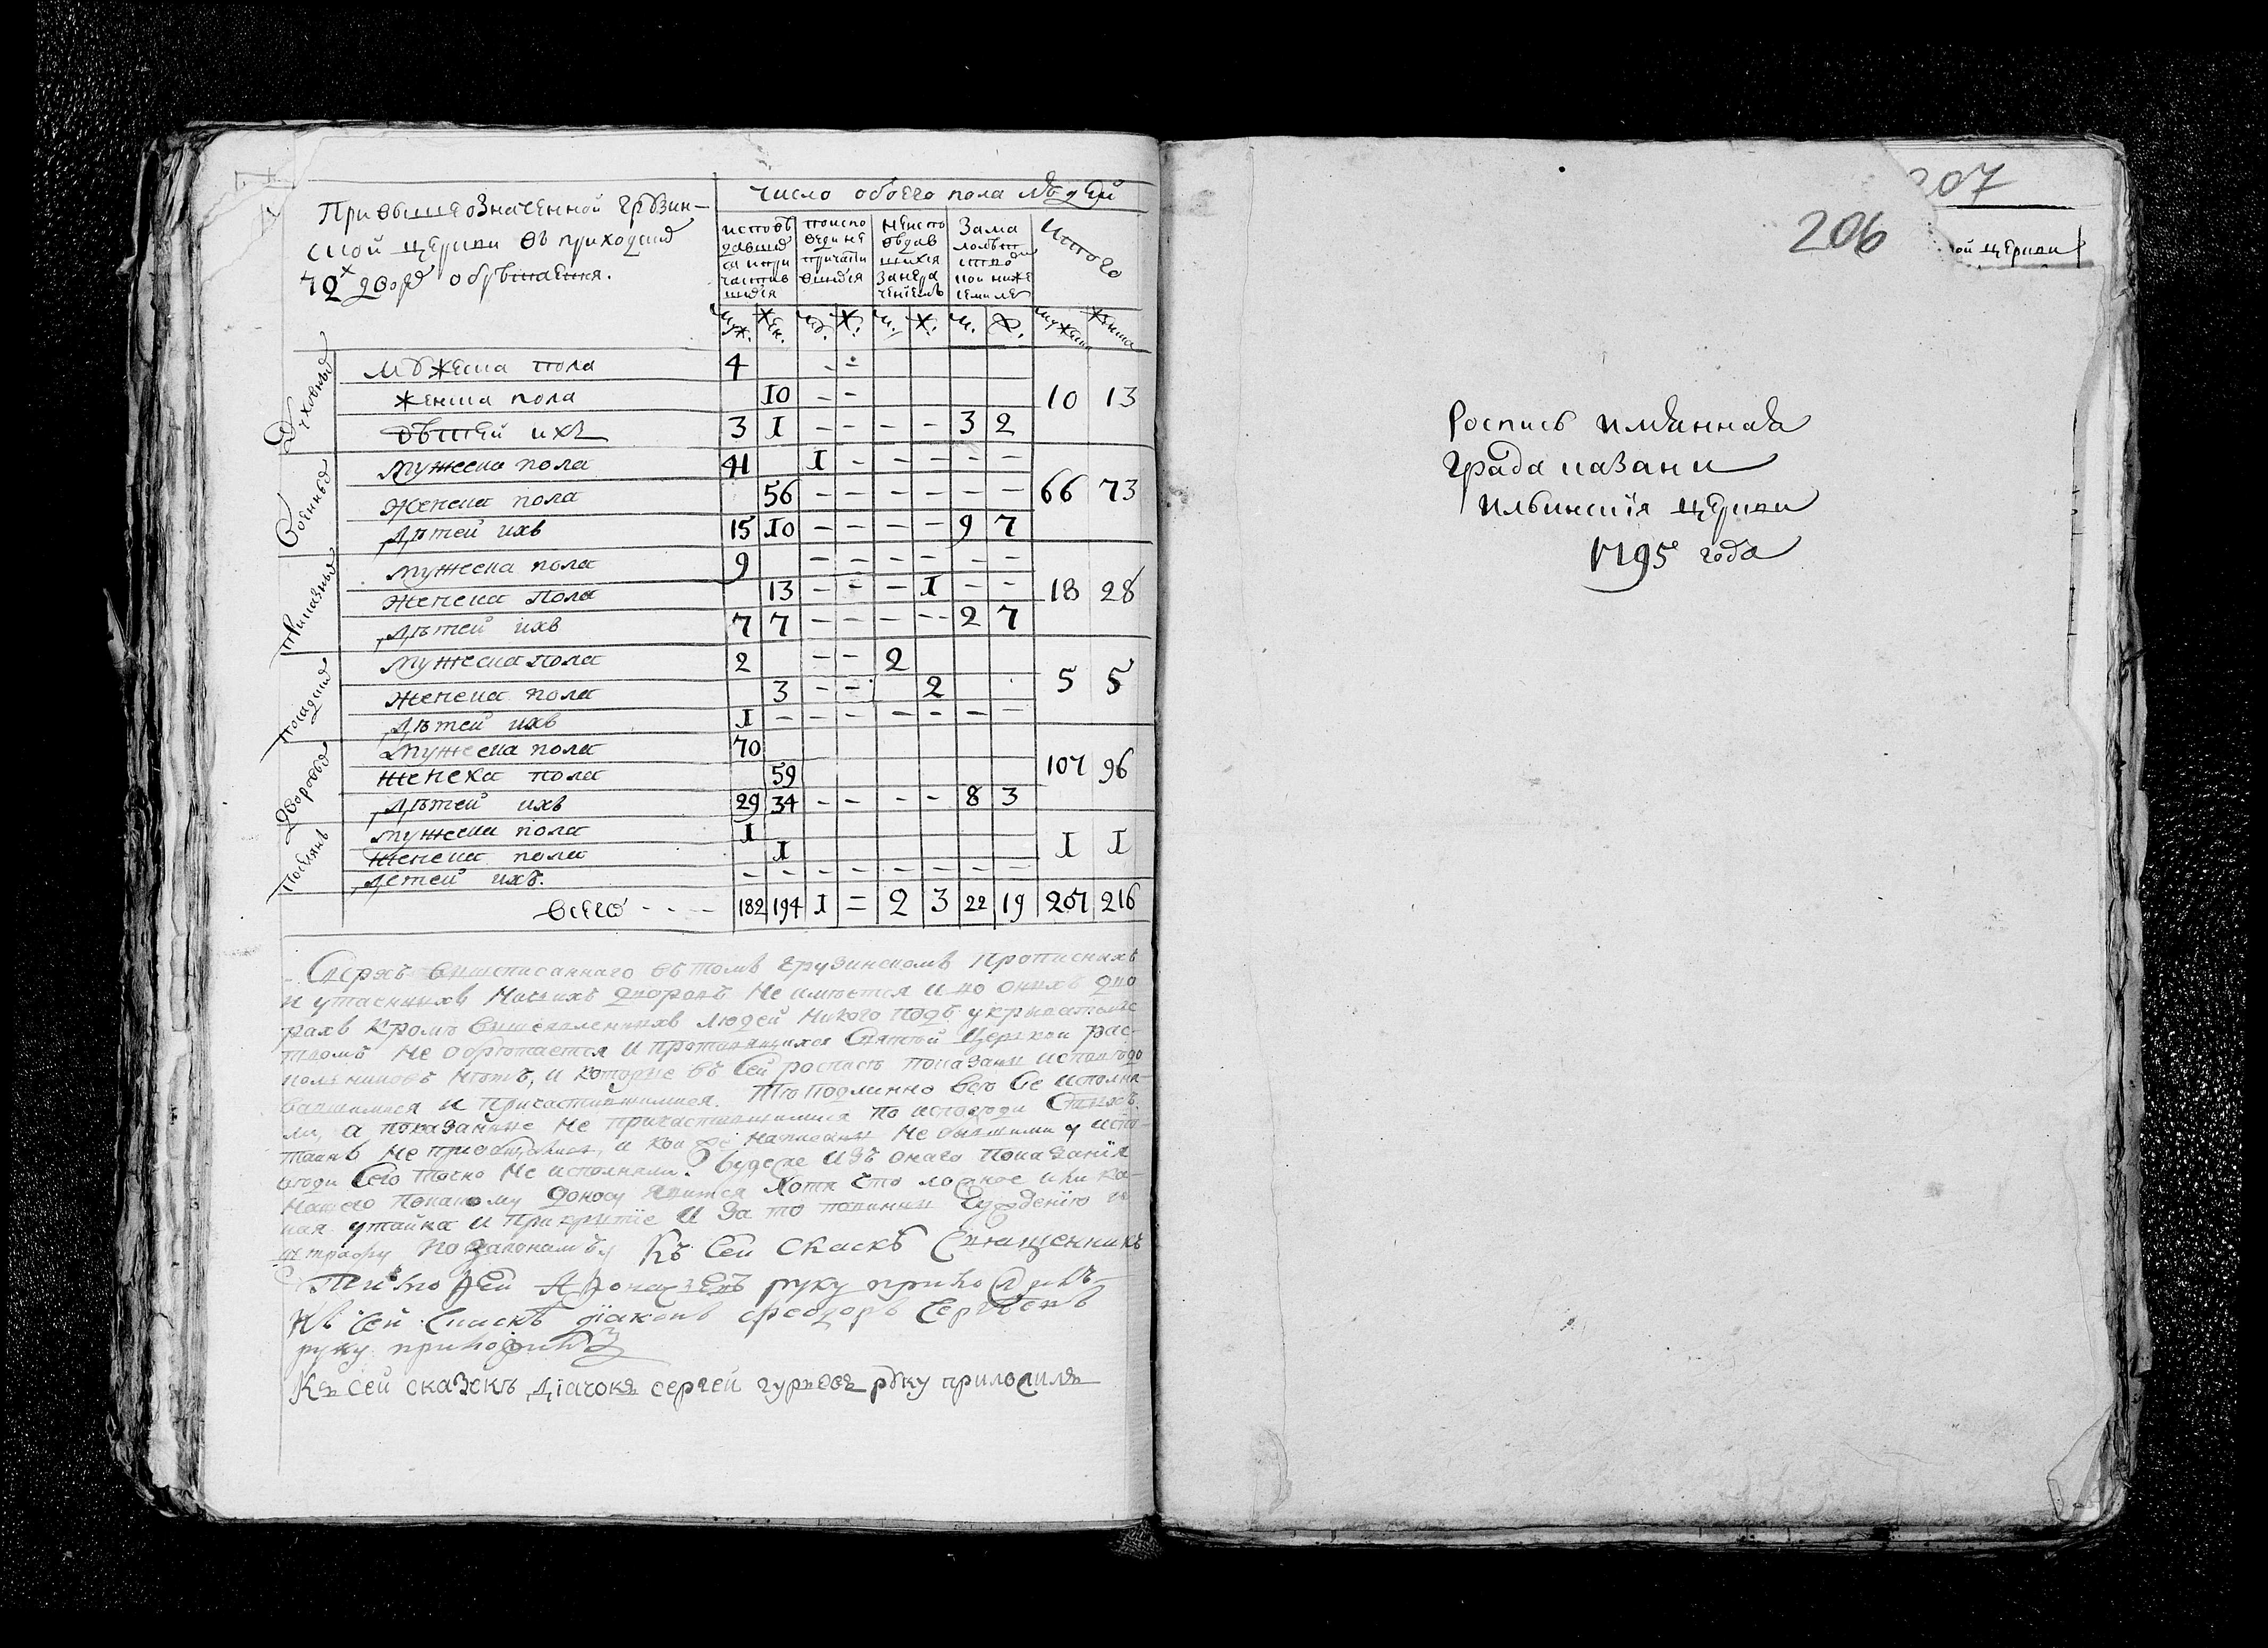 При вышеозначенной грузин-
ской церкви въ приходских
72х дворѣ обрѣтаются.
число обоего пола людей
исповѣ давшихся и при частив шихся
по испо веди не причасти вшихся
не испо вѣдав шихся за нера чениемъ
За мало
итого
муж. жен. м. ж. м. ж. м. ж. мужска женска
Духовныя
мужеска пола 4 - -
женска пола 10 - - 10 13
дѣтей ихъ 3 1 - - - - 3 2
Военныя
мужеска пола 41 1 - - - - -
женска пола 56 - - - - - - 66 73
дѣтей ихъ 15 10 - - - - 9 7
Приказныя
мужеска пола 9 - - - - - -
женска пола 13 - - - 1 - - 18 28
дѣтей ихъ 7 7 - - - - 2 7
Посадския
мужеска пола 2 - - 2
женска пола 3 - - 2 5 5
дѣтей ихъ 1 - - - - - - -
Дворовыя
мужеска пола 70
женска пола 59 107 96
дѣтей ихъ 29 34 - - - - 8 3
Поселянъ
мужеска пола 1
женска пола 1 1 1
детей ихъ. - - - - - - - -
всего - - - 182 194 1 = 2 3 22 19 207 216
Сверхъ вышеписаннаго въ томъ грузинскомъ прописныхъ
и утаенныхъ никихъ дворовъ не имѣется и во оныхъ дво
рахъ кромѣ вышеявленныхъ людей никого подъ укрыватель
ствомъ не обрѣтается и противящихся Святой Церкви рас-
кольниковъ нѣтъ, и которые въ сей росписѣ показаны исповѣдо
вавшимися и причастившимися. То подлинно все сіе исполни-
ли, а показанные не причастившимися по исповѣди Святыхъ
таинъ не приобщались, и кои же написаны не бывшими у испо
вѣди сего точно не исполняли. буде же изъ онаго показанія
нашего по какому доносу явится хотя что ложное или ка-
кая утайка и прикрытіе и за то повинны суждению и
штрафу по законамъ. Къ сей скаскѣ Священникъ
Тимофей руку приложилъ
Къ сей скаскѣ діаконъ Феодоръ Сергѣевъ
руку приложилъ
Къ сей сказскѣ діачокъ сергей гурьевъ руку приложилъ
207
206
ой церкви
Роспись имянная
града казани
ильинскія церкви
1795 года